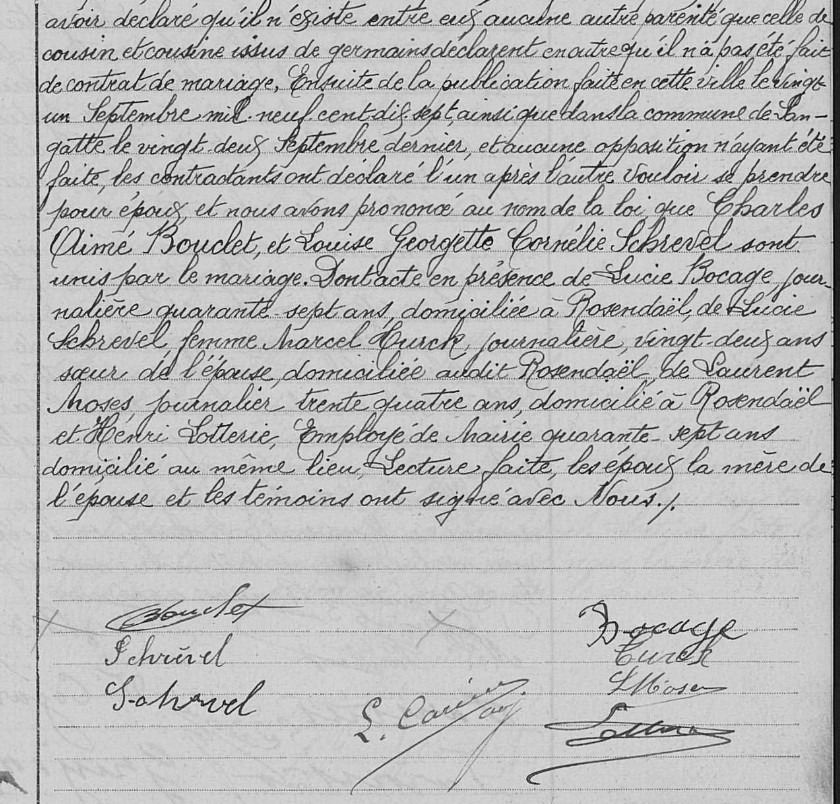 avoir déclaré qu'il n'existe entre eux aucune autre parenté que celle de
cousin et cousine issus de germains déclarent en outre qu'il n'a pas été fait
de contrat de mariage. Ensuite de la publication faite en cette ville le vingt-
un Septembre mil neuf cent dix sept, ainsi que dans la commune de San-
gatte le vingt-deux Septembre dernier, et aucune opposition n'ayant été
faite, les contractants ont déclaré l'un après l'autre vouloir se prendre
pour époux, et nous avons prononcé au nom de la loi, que Charles
Aimé Bouclet, et Louise Georgette Cornélie Schrevel sont
unis par le mariage. Dont acte en présence de Lucie Bocage jour-
nalière quarante-sept ans, domiciliée à Rosendaël, de Lucie
Schrevel femme Marcel Turck, journalière, vingt-deux ans
sœur de l'épouse, domiciliée audit Rosendaël, de Laurent
Moses, journalier trente quatre ans, domicilié à Rosendaël
et Henri Lotterie, Employé de Mairie quarante-sept ans
domicilié au même lieu, Lecture faite, les époux la mère de
l'épouse et les témoins ont signé avec Nous./.
Bouclet
Bocage
Schrevel
Turck
L Moses
Schrevel